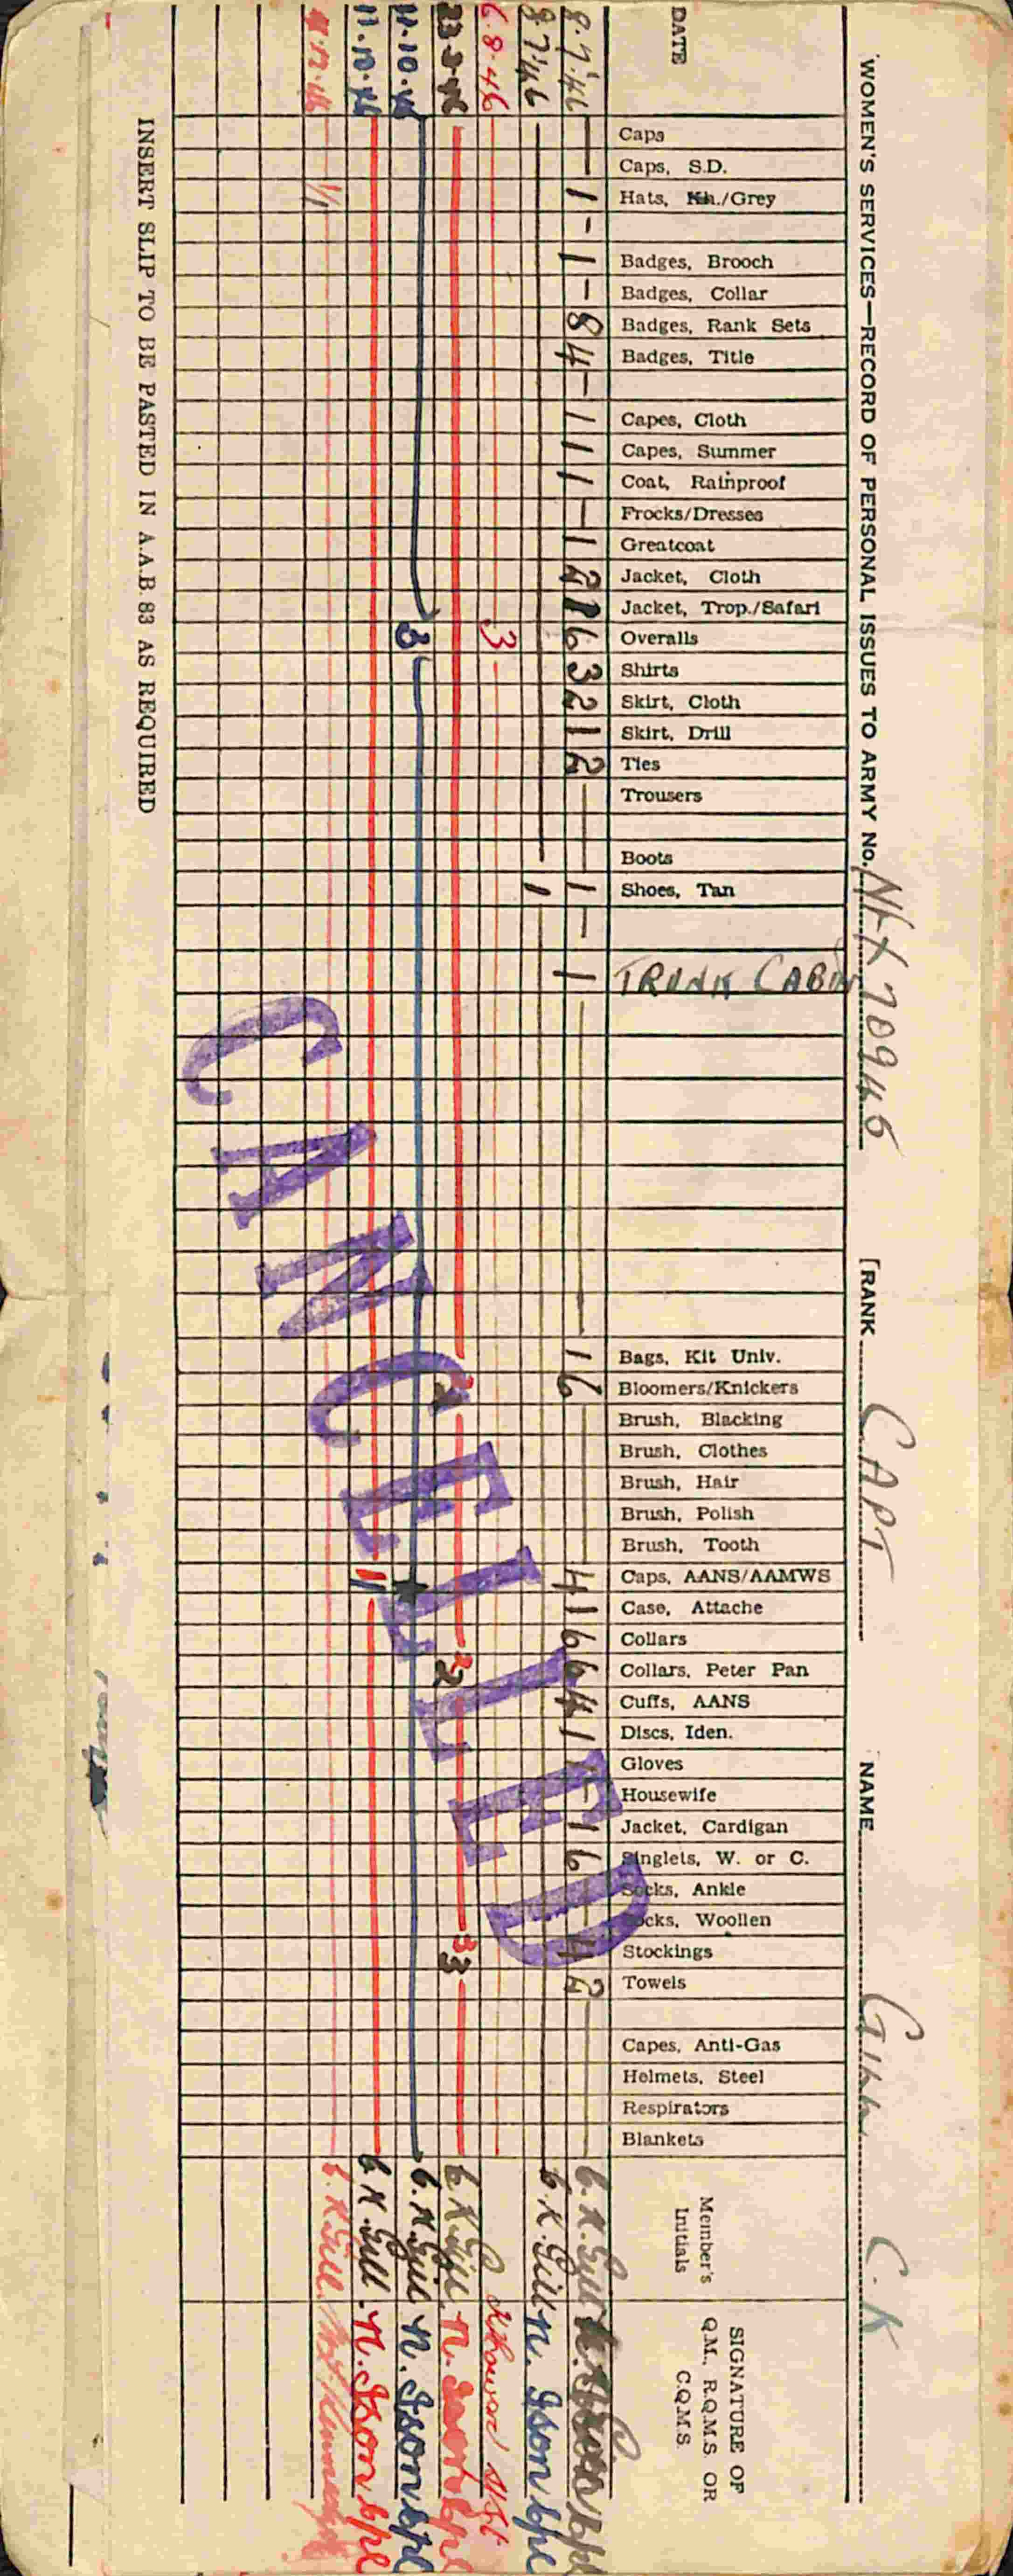 WOMEN'S SERVICES—RECORD OF PERSONAL ISSUES TO ARMY No. NFX 70946 RANK CAPT NAME GILL C. K
DATE
Caps
Caps, S.D.
Hats, Kh./Grey
Badges, Brooch
Badges, Collar
Badges, Rank Sets
Badges, Title
Capes, Cloth
Capes, Summer
Coat, Rainproof
Frocks/Dresses
Greatcoat
Jacket, Cloth
Jacket, Trop./Safari
Overalls
Shirts
Skirt, Cloth
Skirt, Drill
Ties
Trousers
Boots
Shoes, Tan
TRUNK CABIN
Bags, Kit Univ.
Bloomers/Knickers
Brush, Blacking
Brush, Clothes
Brush, Hair
Brush, Polish
Brush, Tooth
Caps, AANS/AAMWS
Case, Attache
Collars
Collars, Peter Pan
Cuffs, AANS
Discs, Iden.
Gloves
Housewife
Jacket, Cardigan
Singlets, W. or C.
Socks, Ankle
Socks, Woollen
Stockings
Towels
Capes, Anti-Gas
Helmets, Steel
Respirators
Blankets
Member's
Initials
SIGNATURE OF
Q.M., R.Q.M.S. OR
C.Q.M.S.
8.7.46 1 - 1 - 8 4 - 1 1 1 - 1 2 6 3 2 1 2 1 - 1 1 6 4 1 6 6 4 1 - 1 6 4 2
8.7.46 1 C.K.Gill N. Ison Cpl
6.8.46 3
2 3 C.K.Gill N. Ison Cpl
11.10.46 3 C.K.Gill N. Ison Cpl
11.10.46 1 C.K.Gill N. Ison Cpl
1/1 C.K.Gill
CANCELLED
INSERT SLIP TO BE PASTED IN A.A.B. 83 AS REQUIRED